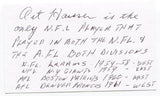 Art Hauser is the
only N.F.L Player that
Played in both the N.F.L. &
The A.F.L both Divisions
N.F.L L.A RAMS 1954-57 WEST
NFL N.Y GIANTS 1959 EAST
AFL Boston Patriots 1960 - EAST
AFL Denver Broncos 1961 - WEST